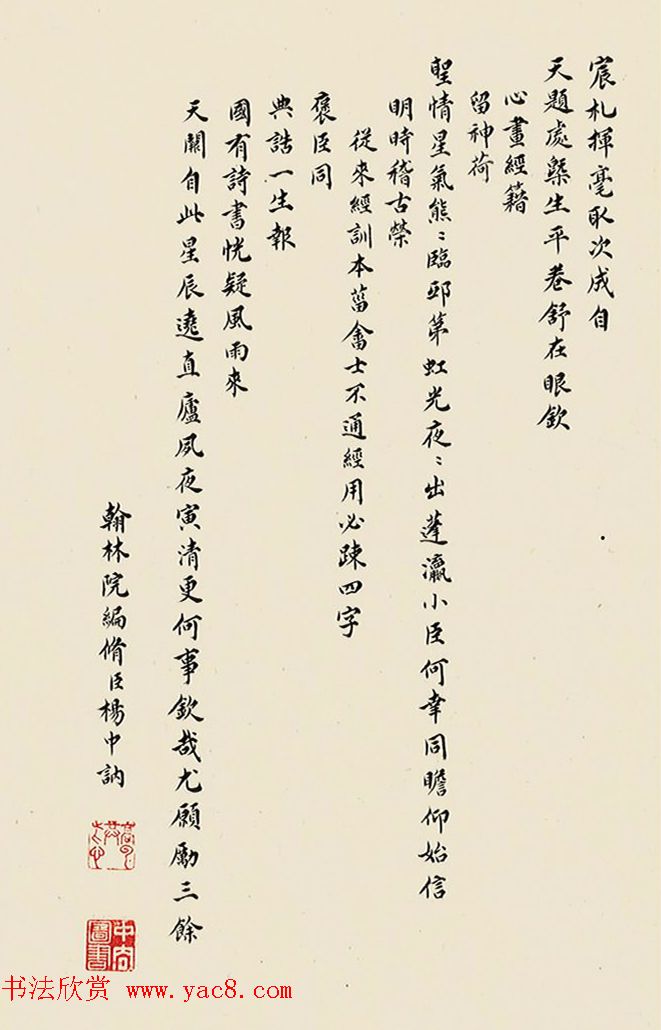 宸札揮毫取次成自
天題處槩生平卷舒在眼欽
心畫經籍
留神荷
聖情星氣熊〻臨邸第虹光夜〻出蓬瀛小臣何幸同瞻仰始信
明時稽古榮
從來經訓本菑畬士不通經用必疎四字
褒臣同
典誥一生報
國有詩書恍疑風雨來
天關自此星辰遶直廬夙夜寅清更何事欽哉尤願勵三餘
翰林院編脩臣楊中訥
书法欣赏 www.yac8.com